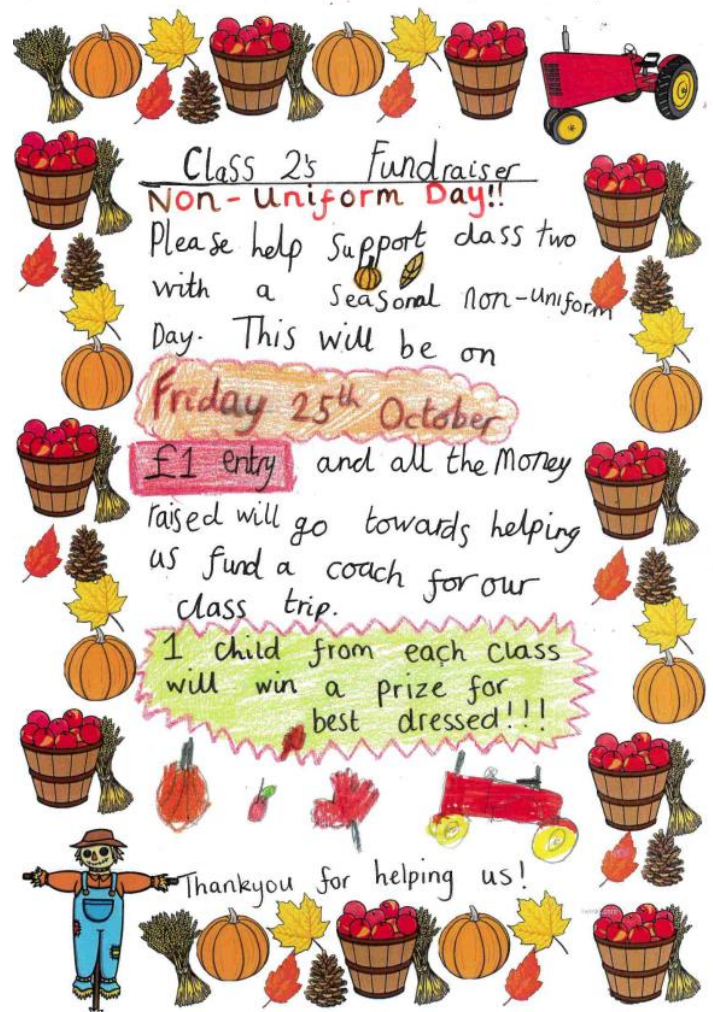 Class 2's Fundraiser
Non-Uniform Day!!
Please help support class two
with a seasonal non-uniform
Day. This will be on
Friday 25th October
£1 entry and all the Money
raised will go towards helping
us fund a coach for our
class trip.
1 child from each class
will win a prize for
best dressed!!!
Thankyou for helping us!